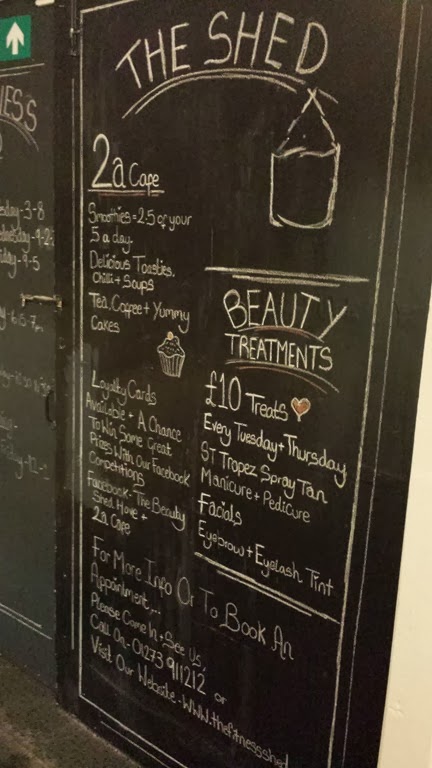 THE SHED
2a Cafe
Smoothies = 2.5 of your
5 a day.
Delicious Toasties.
Chilli + Soups
Tea, Coffee + Yummy
Cakes
Loyalty Cards
Available + A Chance
To Win Some Great
Prizes With Our Facebook
Competitions
Facebook - The Beauty
Shed Hove +
2a Cafe
BEAUTY
TREATMENTS
£10 Treats
Every Tuesday + Thursday
ST Tropez Spray Tan
Manicure + Pedicure
Facials
Eyebrow + Eyelash Tint
For More Info Or To Book An
Appointment...
Please Come In + See Us,
Call On - 01273 911212 or
Visit Our Website - www.thefitnessshed